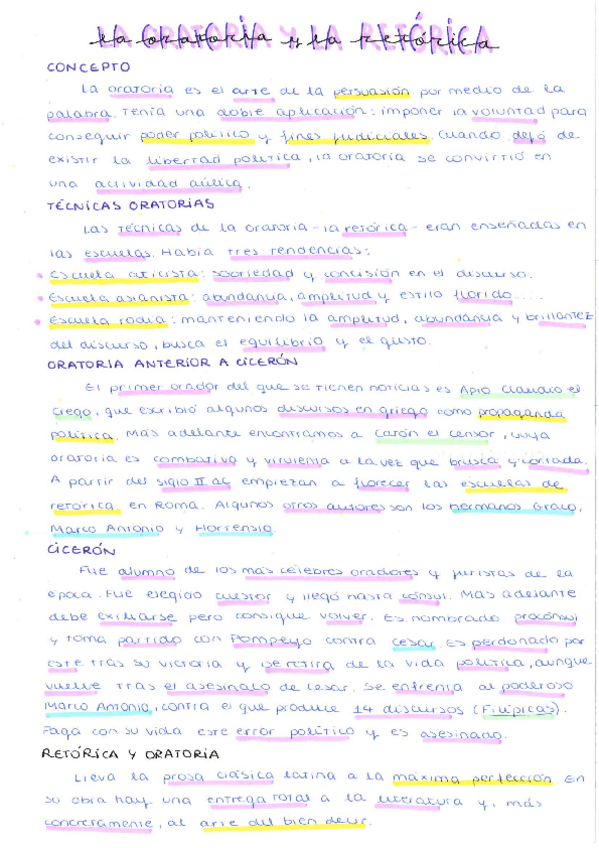 LA ORATORIA Y LA RETÓRICA
CONCEPTO
La oratoria es el arte de la persuasión por medio de la
palabra. Tenía una doble aplicación: imponer la voluntad para
conseguir poder político y fines judiciales. Cuando dejó de
existir la libertad política, la oratoria se convirtió en
una actividad aúlica.
TÉCNICAS ORATORIAS
Las técnicas de la oratoria - la retórica - eran enseñadas en
las escuelas. Había tres tendencias:
• Escuela aticista: sobriedad y concisión en el discurso.
• Escuela asianista: abundancia, amplitud y estilo florido.....
• Escuela rodia: manteniendo la amplitud, abundancia y brillantez
del discurso, busca el equilibrio y el gusto.
ORATORIA ANTERIOR A CICERÓN
El primer orador del que se tienen noticias es Apio Claudio el
Ciego, que escribió algunos discursos en griego como propaganda
política. Más adelante encontramos a Catón el censor, cuya
oratoria es combativa y virulenta a la vez que brusca y cortada.
A partir del siglo II aC empiezan a florecer las escuelas de
retórica en Roma. Algunos otros autores son los hermanos Graco,
Marco Antonio y Hortensio.
CICERÓN
Fue alumno de los más célebres oradores y juristas de la
época. Fue elegido cuestor y llegó hasta cónsul. Más adelante
debe exiliarse pero consigue volver. Es nombrado procónsul
y toma partido con Pompeyo contra César. Es perdonado por
este tras su victoria y se retira de la vida política, aunque
vuelve tras el asesinato de César. Se enfrenta al poderoso
Marco Antonio, contra el que produce 14 discursos (Filípicas).
Paga con su vida este error político y es asesinado.
RETÓRICA Y ORATORIA
Lleva la prosa clásica latina a la máxima perfección. En
su obra hay una entrega total a la literatura y, más
concretamente, al arte del bien decir.